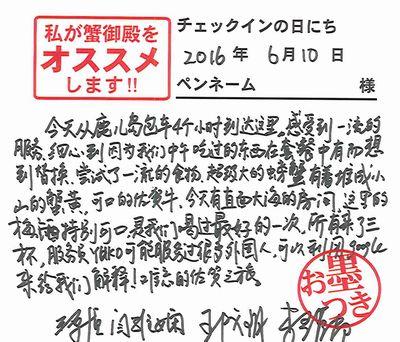 私が蟹御殿を
オススメ
します!!
チェックインの日にち
2016年 6月10日
ペンネーム 様
今天从鹿儿岛包车4个小时到达这里,感受到一流的
服务,细心到因为我们中午吃过的东西在套餐中有而想
到替换,尝试了一流的食物,超级大的螃蟹有着堆成小
山的蟹黄,可口的佐賀牛,今天有直面大海的房间,这里的
梅酒特别可口,是我们喝过最好的一次,所有来了三
杯,服务员YUKO可能服务过很多外国人,可以利用google
来给我们解释!难忘的佐贺之旅
お墨
つき